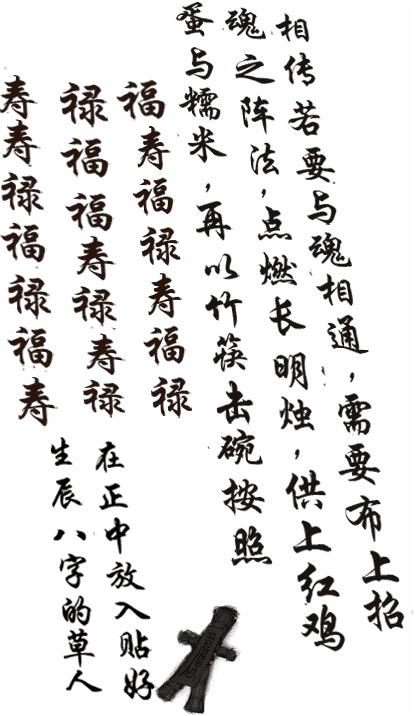 相传若要与魂相通，需要布上招
魂之阵法，点燃长明烛，供上红鸡
蛋与糯米，再以竹筷击碗按照
福寿福禄寿福禄
禄福福寿禄寿禄
寿寿禄福禄福寿
在正中放入贴好
生辰八字的草人